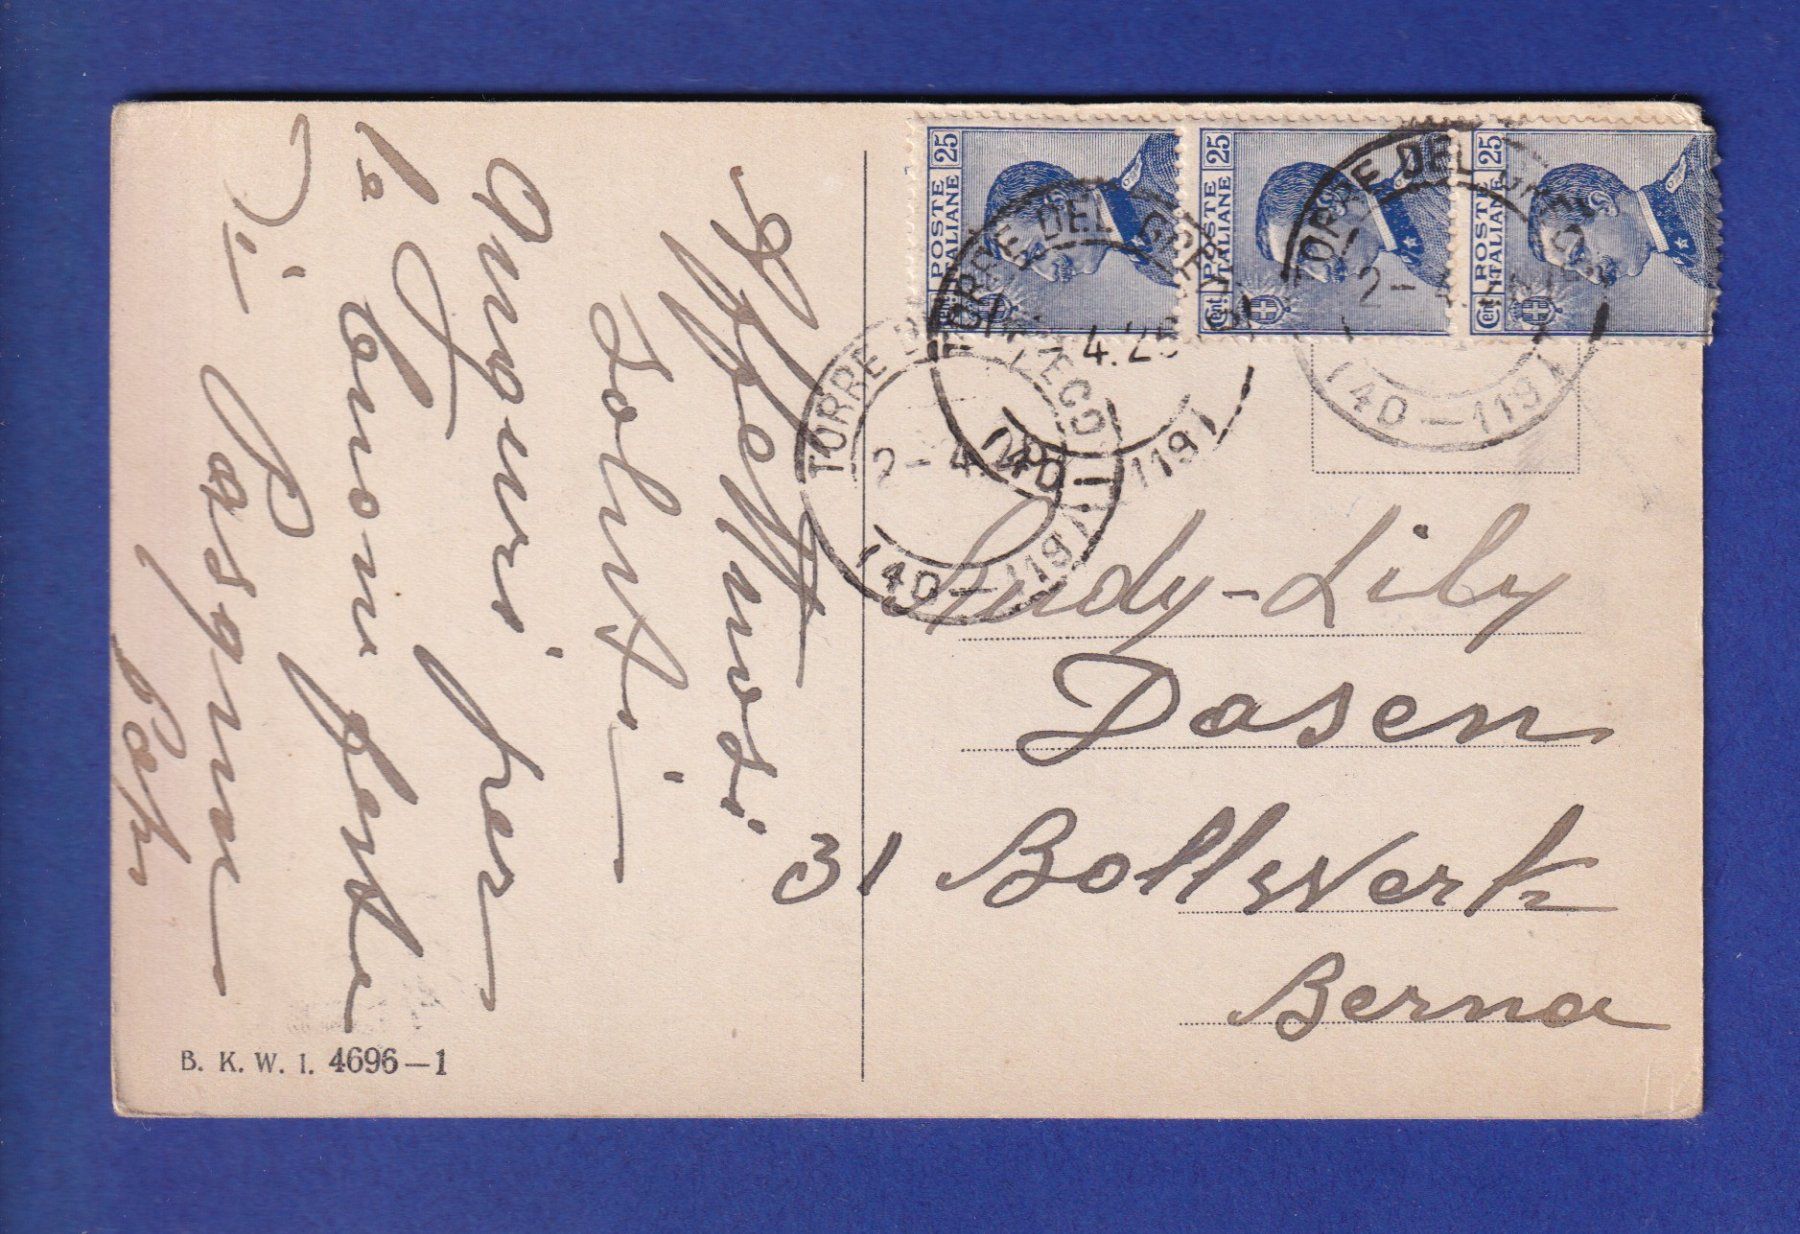 Affettuosi
saluti
Auguri per
la buone feste
di Pasqua
Papà
B. K. W. I. 4696–1
25
POSTE
ITALIANE
Cent
25
POSTE
ITALIANE
Cent
25
POSTE
ITALIANE
Cent
TORRE DEL GRECO
2-4.2
(40-119)
TORRE DEL GRECO
4.2
(40 119)
TORRE DEL GRECO
2-
(40-119)
Lindy-Lily
Dasen
31 Bollwerk
Berna